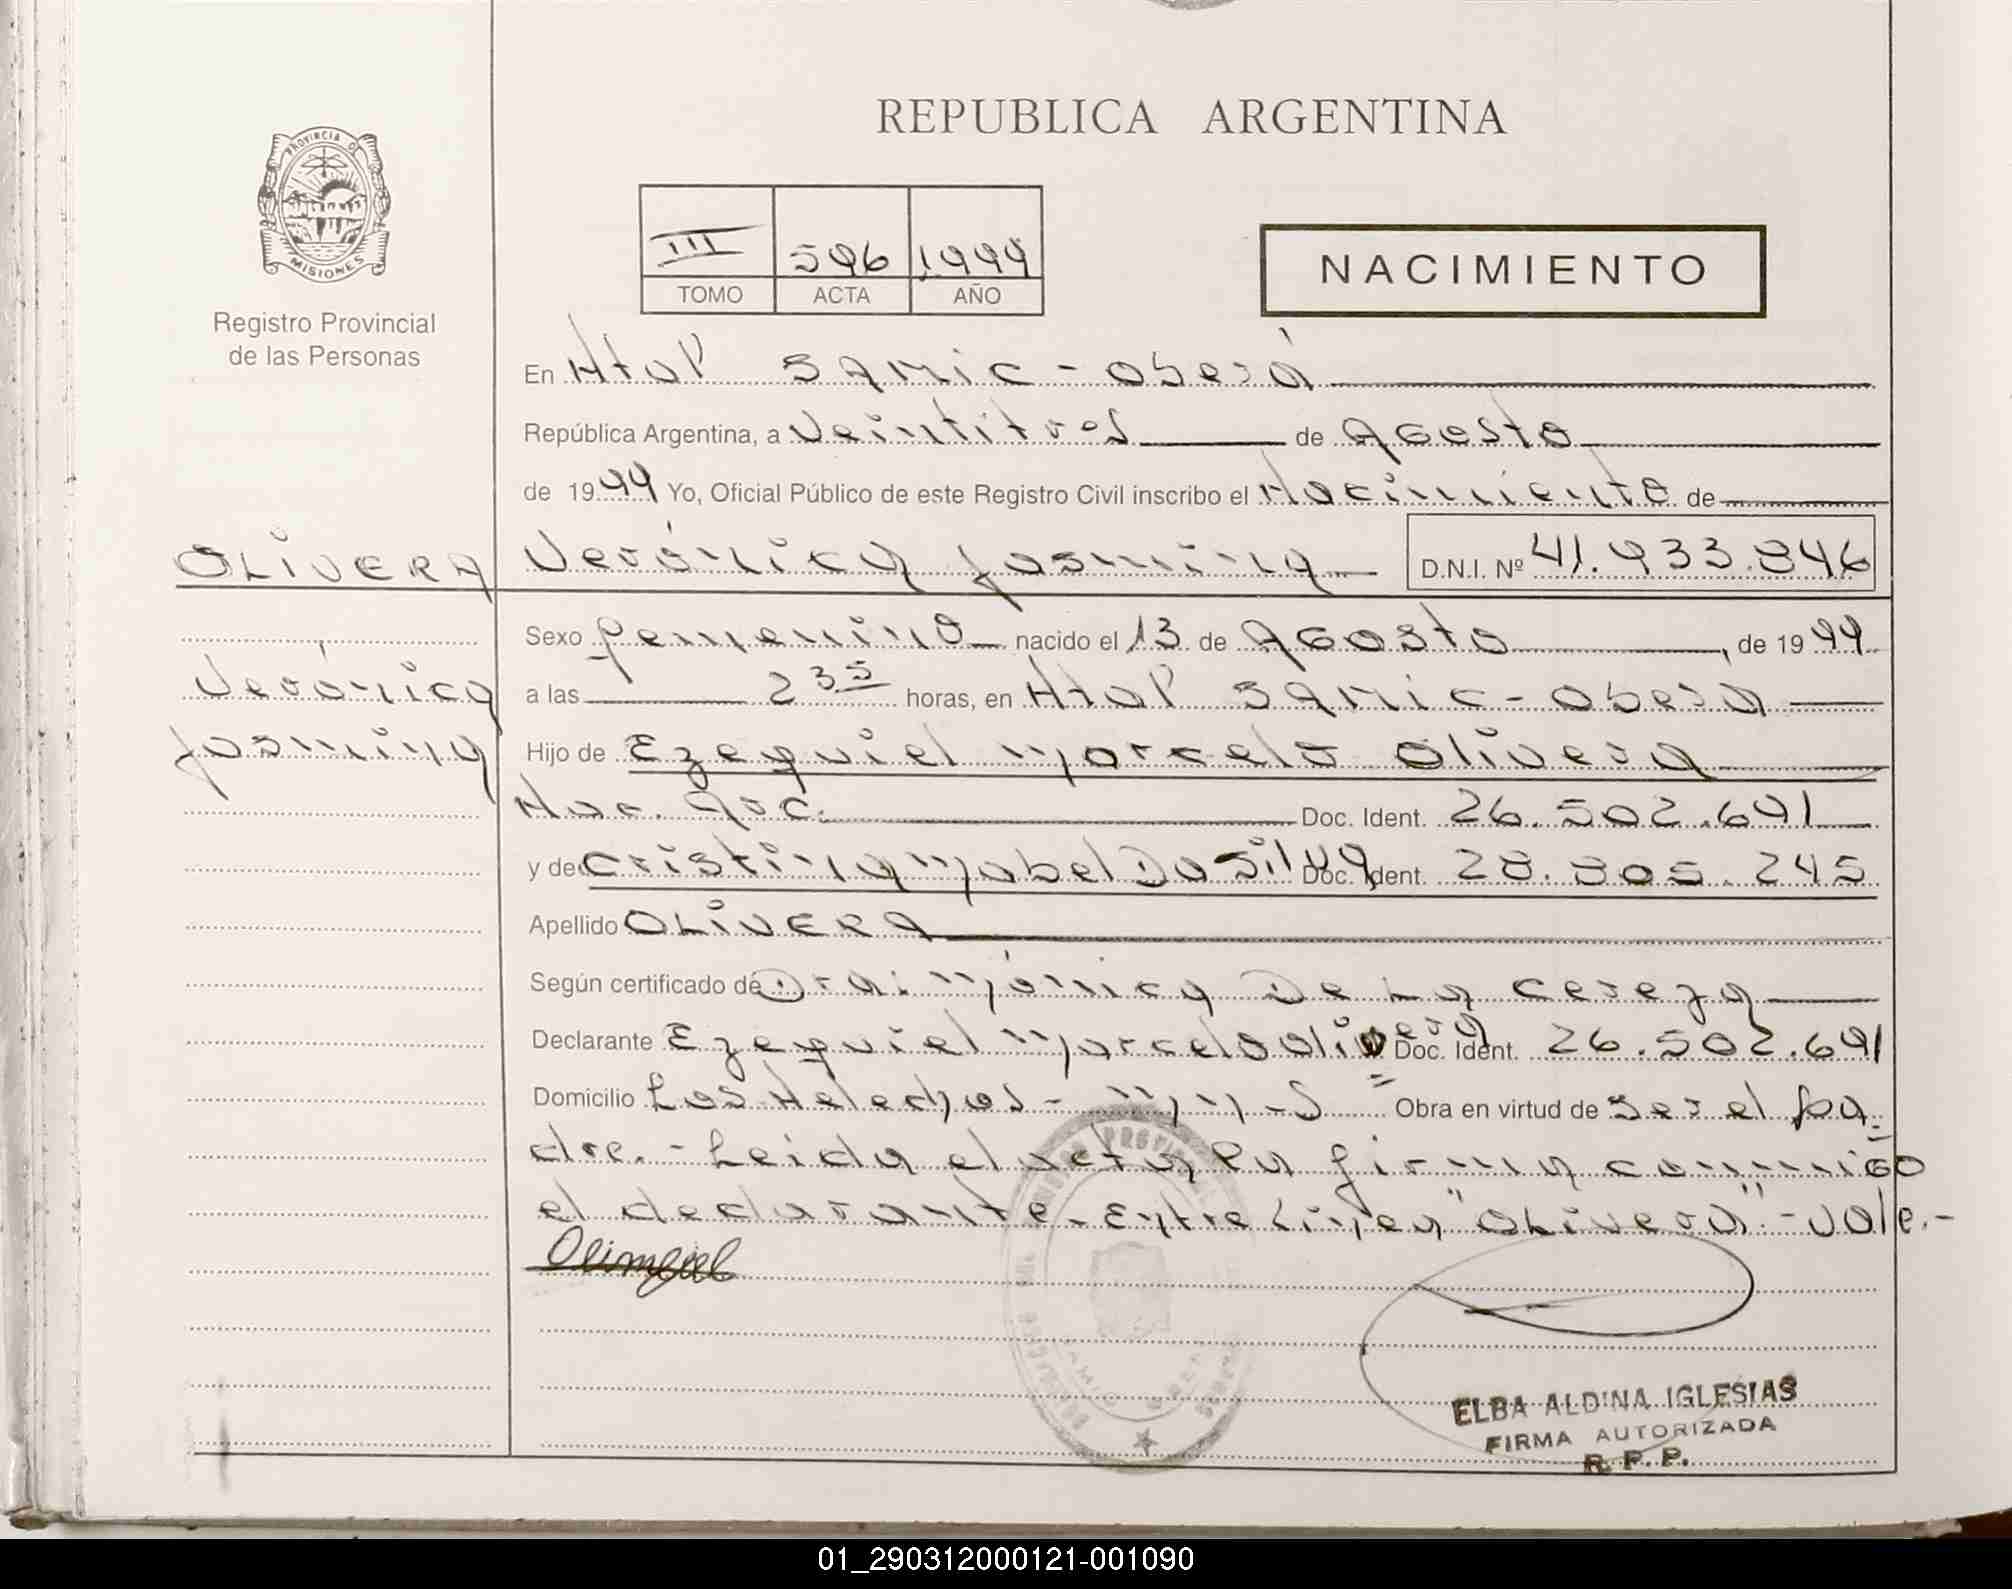 REPUBLICA ARGENTINA
PROVINCIA D
MISIONES
Registro Provincial
de las Personas
III 596 1999
TOMO ACTA AÑO
NACIMIENTO
En Htal SAMIC - Oberá
República Argentina, a Veintitres de Agosto
de 1999 Yo, Oficial Público de este Registro Civil inscribo el Nacimiento de
OLIVERA Verónica Jasmina D.N.I. Nº 41.933.846
Sexo femenino nacido el 13 de Agosto, de 1999
Verónica
a las 2 35 horas, en Htal SAMIC - Oberá
Jasmina
Hijo de Ezequiel Marcelo Olivera
Nac. Arg. Doc. Ident. 26.502.691
y de Cristina Mabel Da Silva Doc. Ident. 28.805.245
Apellido OLIVERA
Según certificado de Dra: Mónica De La Cereza
Declarante Ezequiel Marcelo Olivera Doc. Ident. 26.502.691
Domicilio Los Helechos - Mnes Obra en virtud de ser el pa=
dre. - Leida el acta la firma conmigo
el declarante. Entre Linea "OLivera" - Vale.-
ELBA ALDINA IGLESIAS
FIRMA AUTORIZADA
R. P. P.
01_290312000121-001090